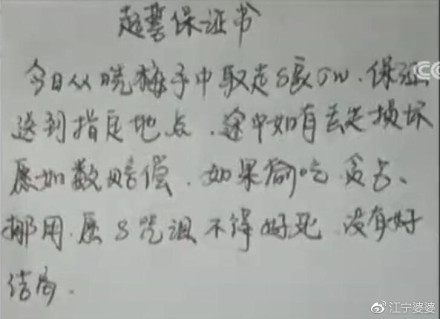 起誓保证书
CC
今日从晓梅手中取走 保证
送到指定地点,途中如有丢失损坏
愿如数赔偿,如果偷吃贪占、
挪用,愿 咒诅不得好死,没有好
结局.
@江宁婆婆